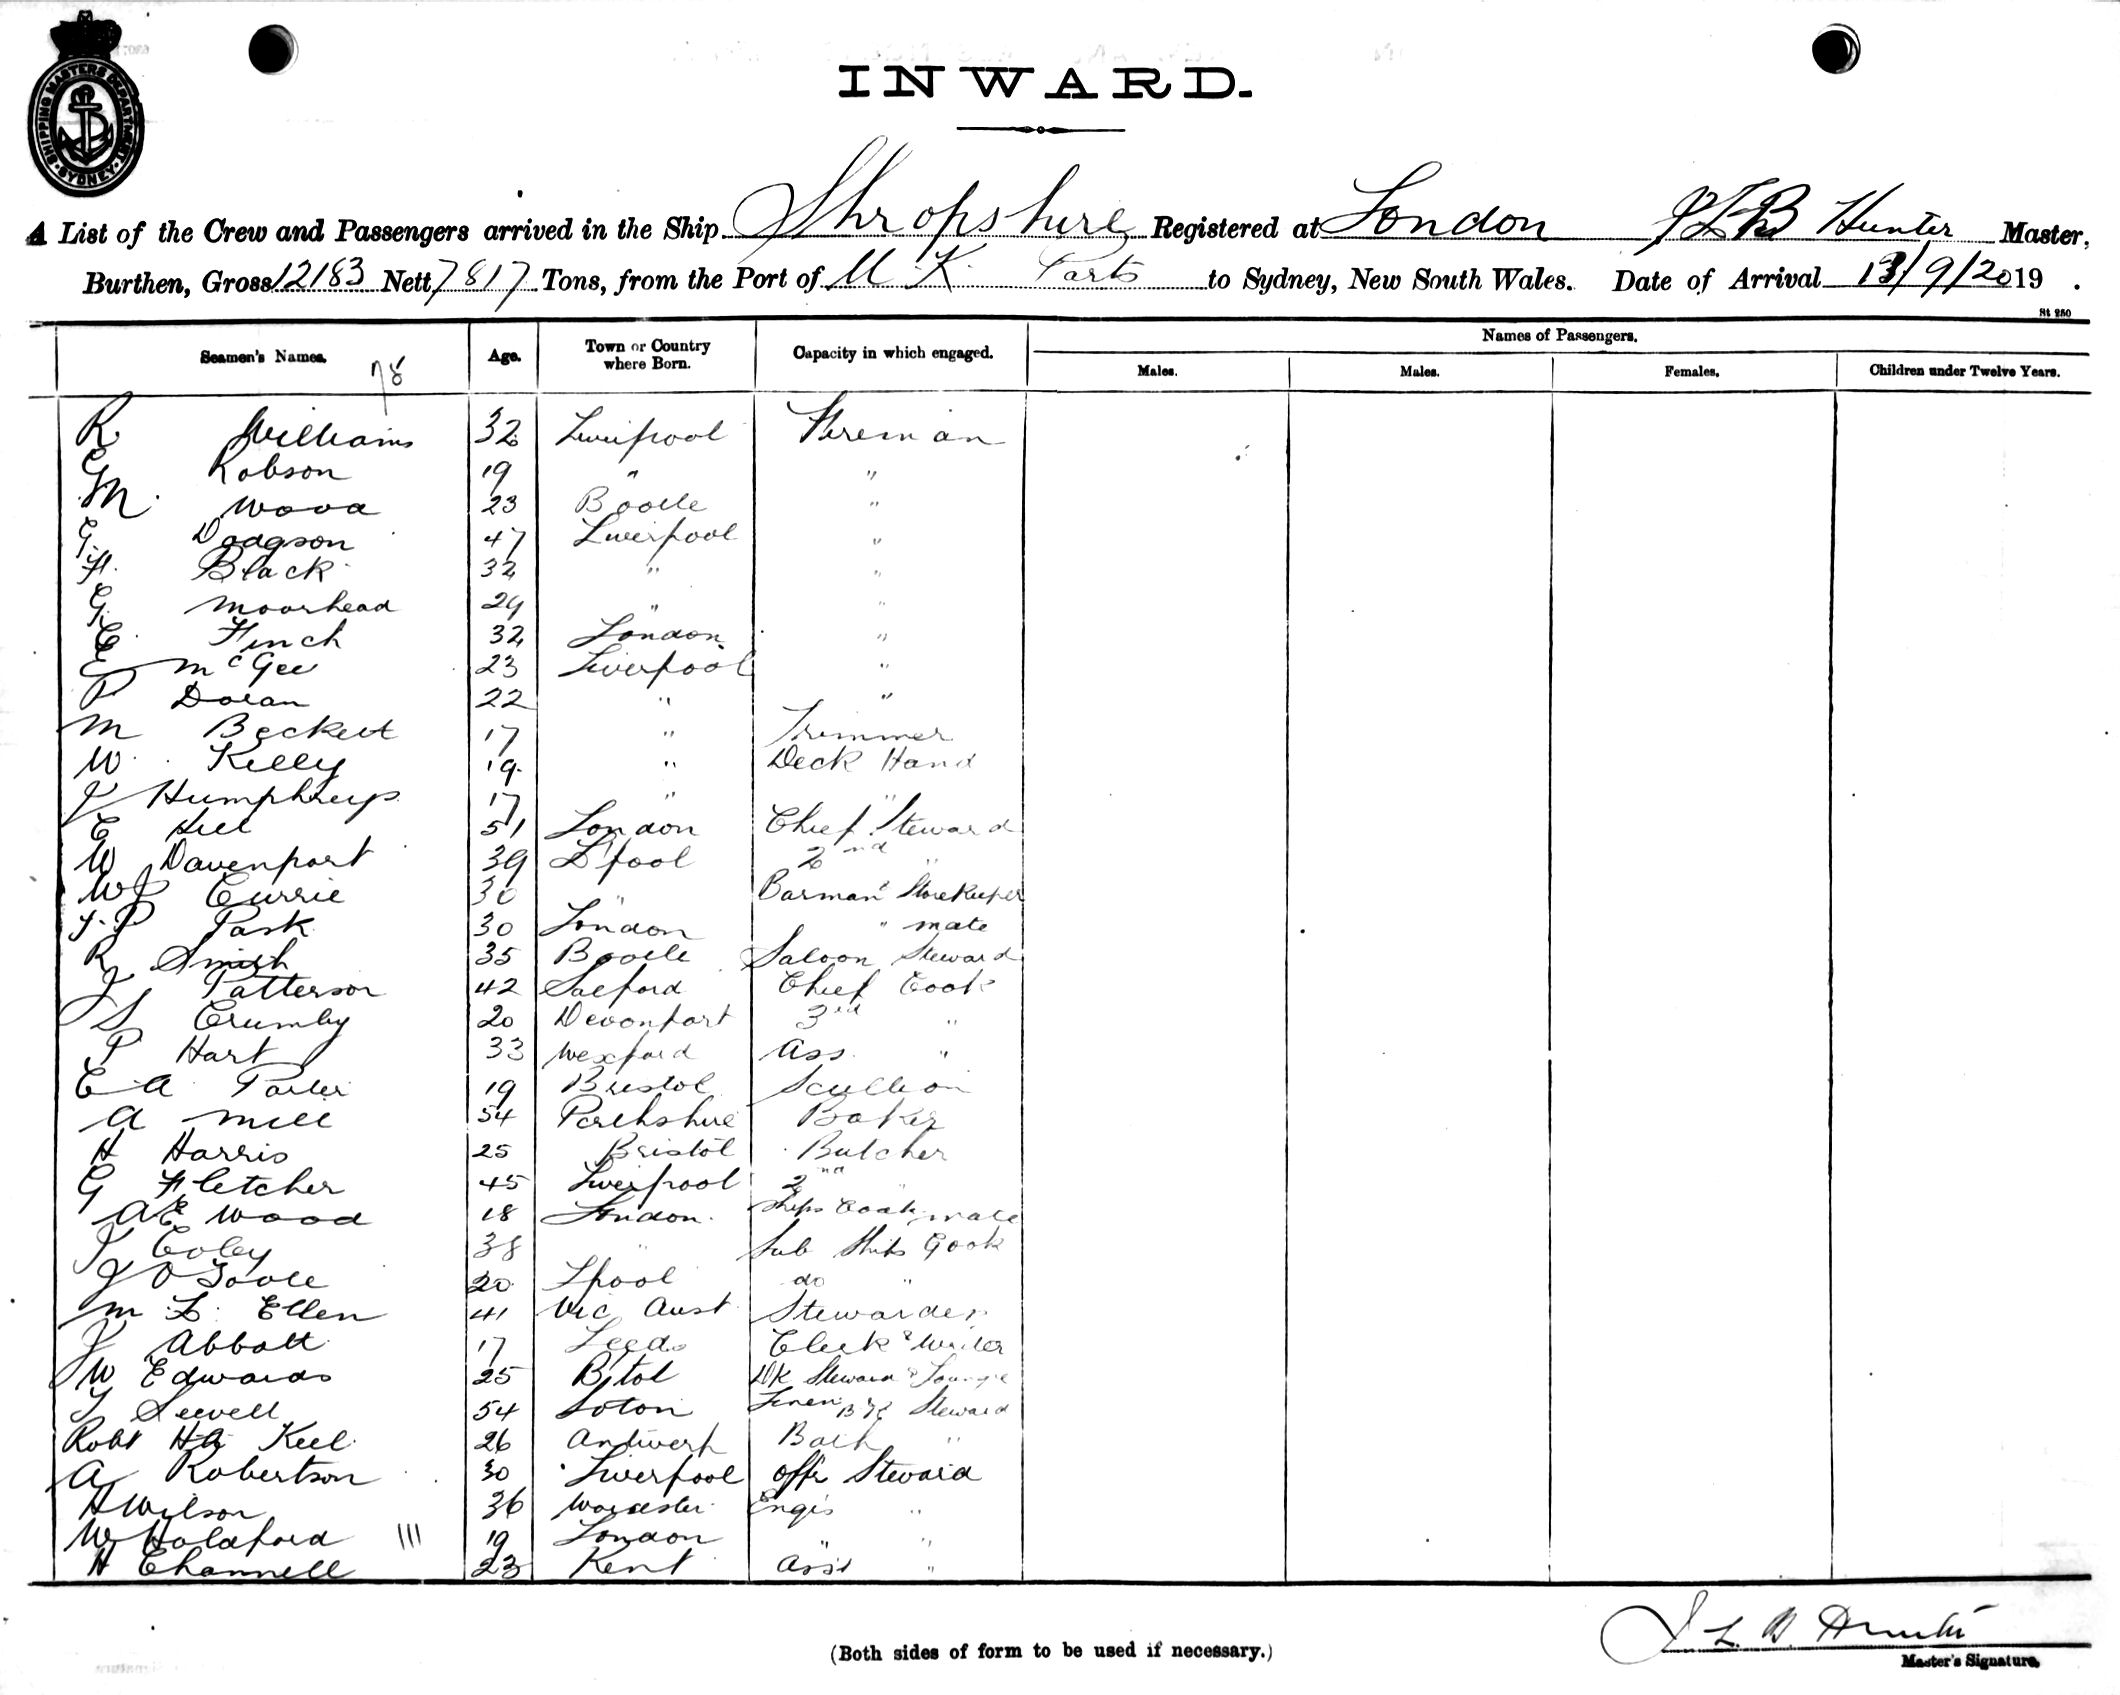 SHIPPING MASTERS DEPARTMENT SYDNEY
INWARD.
A List of the Crew and Passengers arrived in the Ship Shropshire Registered at London J L B Hunter Master,
Burthen, Gross 12183 Nett 7817 Tons, from the Port of U.K. Ports to Sydney, New South Wales. Date of Arrival 13/9/20 19 .
St 250
Seamen's Names. 78 Age. Town or Country where Born. Capacity in which engaged. Names of Passengers.
Males. Males. Females. Children under Twelve Years.
R Williams 32 Liverpool Fireman
G Robson 19 " "
M Wood 23 Bootle "
G Dodgson 47 Liverpool "
H. Black 32 " "
G. Moorhead 29 " "
C Finch 32 London "
E McGee 23 Liverpool "
P Doran 22 " "
M Beckett 17 " Trimmer
W Kelly 19 " Deck Hand
J Humphreys 17 " "
C Hill 51 London Chief Steward
W Davenport 39 L'pool 2nd "
W J Currie 30 " Barman & Storekeeper
F. P Park 30 London " mate
R Smith 35 Bootle Saloon Steward
J Patterson 42 Salford Chief Cook
S Crumby 20 Devonport 3rd "
P Hart 33 Wexford Ass. "
C A Parler 19 Bristol Scullion
A Mill 54 Perthshire Baker
H Harris 25 Bristol Butcher
G Fletcher 45 Liverpool 2nd "
A E Wood 18 London Ships Cook mate
J Coley 38 " Sub Ships Cook
J O'Toole 20 Lpool do "
M L. Ellen 41 Vic Aust Stewardess
J Abbott 17 Leeds Clerk & Writer
W Edwards 25 B/tol Dk Steward & Lounge
T Sewell 54 Soton Linen Steward
Robt H Keel 26 Antwerp Bath "
A Robertson 30 Liverpool Offr Steward
H Wilson 36 Worcester Engrs "
W Holdford 111 19 London " "
H Channell 23 Kent Asst "
(Both sides of form to be used if necessary.)
J L B Hunter
Master's Signature.